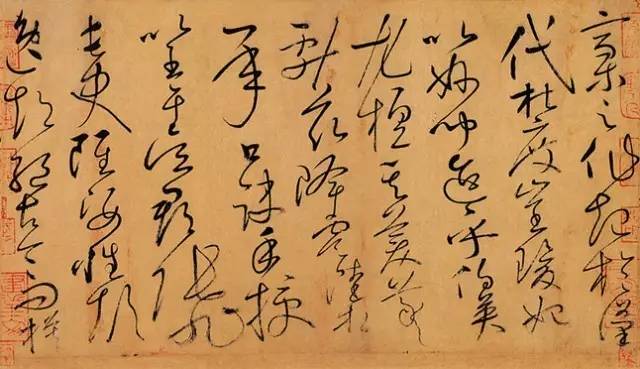 稾之作起於漢
代杜度崔瑗始
以妙聞迨乎伯英
尤擅其美羲
獻茲降虞陸相
承口訣手授
以至于吳郡張旭
長史雖姿性顛
逸超絕古今而模